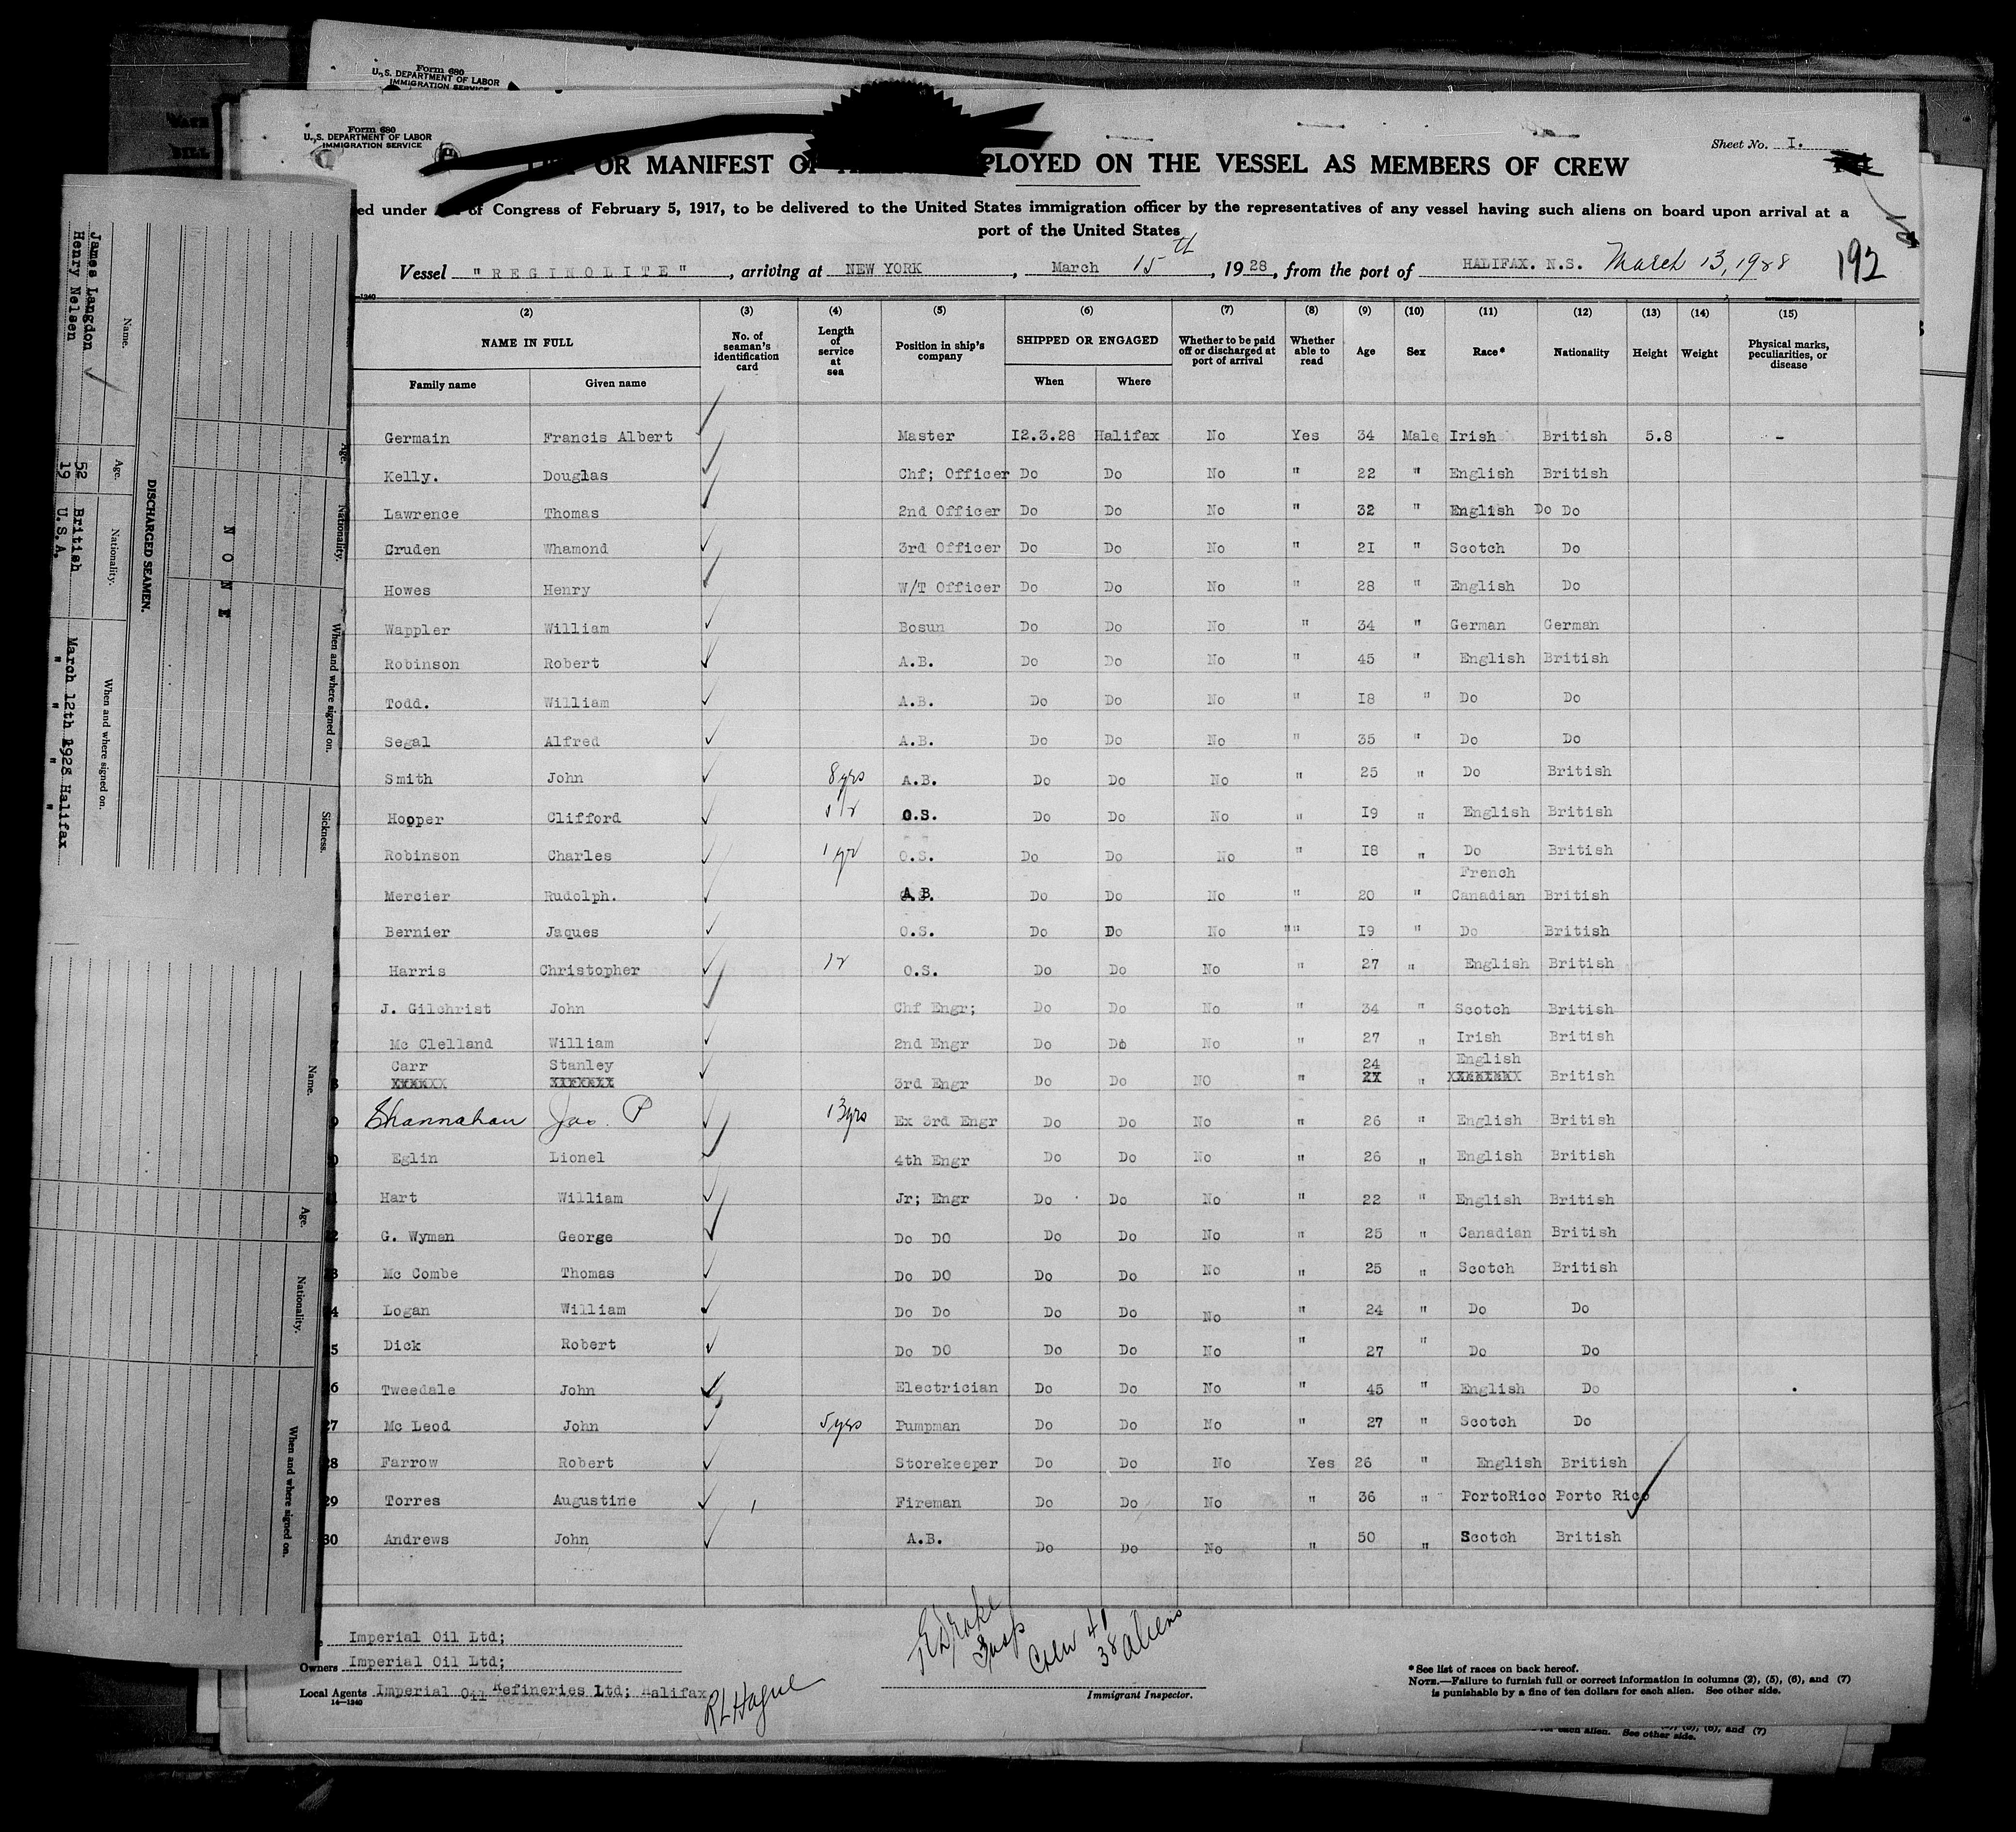 Form 680
U. S. DEPARTMENT OF LABOR
IMMIGRATION SERVICE
Form 680
U. S. DEPARTMENT OF LABOR
IMMIGRATION SERVICE
Sheet No. I.
OR MANIFEST OF PLOYED ON THE VESSEL AS MEMBERS OF CREW
ed under of Congress of February 5, 1917, to be delivered to the United States immigration officer by the representatives of any vessel having such aliens on board upon arrival at a
port of the United States
Vessel "REGINOLITE", arriving at NEW YORK, March 15th, 1928, from the port of HALIFAX. N.S. March 13, 1928 192
(2) (3) (4) (5) (6) (7) (8) (9) (10) (11) (12) (13) (14) (15)
NAME IN FULL No. of seaman's identification card Length of service at sea Position in ship's company SHIPPED OR ENGAGED Whether to be paid off or discharged at port of arrival Whether able to read Age Sex Race* Nationality Height Weight Physical marks, peculiarities, or disease
Family name Given name When Where
Germain Francis Albert Master I2.3.28 Halifax No Yes 34 Male Irish British 5.8 -
Kelly. Douglas Chf; Officer Do Do No " 22 " English British
Lawrence Thomas 2nd Officer Do Do No " 32 " English Do Do
Cruden Whamond 3rd Officer Do Do No " 2I " Scotch Do
Howes Henry W/T Officer Do Do No " 28 " English Do
Wappler William Bosun Do Do No " 34 " German German
Robinson Robert A.B. Do Do No " 45 " English British
Todd. William A.B. Do Do No " I8 " Do Do
Segal Alfred A.B. Do Do No " 35 " Do Do
Smith John 8 yrs A.B. Do Do No " 25 " Do British
Hooper Clifford O.S. Do Do No " I9 " English British
Robinson Charles 1 yr O.S. Do Do No " I8 " Do British
Mercier Rudolph. A.B. Do Do No " 20 " French Canadian British
Bernier Jaques O.S. Do Do No "" I9 " Do British
Harris Christopher O.S. Do Do No " 27 " English British
J. Gilchrist John Chf Engr; Do Do No " 34 " Scotch British
Mc Clelland William 2nd Engr Do Do No " 27 " Irish British
Carr Stanley 24 English
XXXXXX XXXXXXX 3rd Engr Do Do NO " 2X " XXXXXXXX British
8
Shannahan Jas. P 13yrs Ex 3rd Engr Do Do No " 26 " English British
Eglin Lionel 4th Engr Do Do No " 26 " English British
Hart William Jr; Engr Do Do No " 22 " English British
G. Wyman George Do DO Do Do No " 25 " Canadian British
Mc Combe Thomas Do DO Do Do No " 25 " Scotch British
Logan William Do Do Do Do No " 24 " Do Do
Dick Robert Do DO Do Do No " 27 " Do Do
Tweedale John Electrician Do Do No " 45 " English Do
27 Mc Leod John 5yrs Pumpman Do Do No " 27 " Scotch Do
28 Farrow Robert Storekeeper Do Do No Yes 26 " English British
29 Torres Augustine Fireman Do Do No " 36 " PortoRico Porto Rico
30 Andrews John A.B. Do Do No " 50 " Scotch British
Imperial Oil Ltd;
Owners Imperial Oil Ltd;
Local Agents Imperial Oil Refineries Ltd; Halifax
14—1240
RL Hague
Drake
Insp
Crew 41
38 aliens
Immigrant Inspector.
*See list of races on back hereof.
NOTE.—Failure to furnish full or correct information in columns (2), (5), (6), and (7)
is punishable by a fine of ten dollars for each alien. See other side.
for each alien. See other side.
DISCHARGED SEAMEN.
Name. Age. Nationality. When and where signed on.
James Langdon 52 British March 12th 1928 Halifax
Henry Nelsen 19 U.S.A. " " "
Age. Nationality. When and where signed on. Sickness.
NONE
Name. Age. Nationality. When and where signed on.